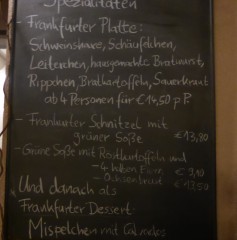 Spezialitäten
- Frankfurter Platte:
Schweinshaxe, Schäufelchen,
Leiterchen, hausgemachte Bratwurst,
Rippchen, Bratkartoffeln, Sauerkraut
ab 4 Personen für €14,50 p.P.
- Frankfurter Schnitzel mit
grüner Soße €13,80
- Grüne Soße mit Röstkartoffeln und
- 4 halben Eier € 9,10
- Ochsenbrust € 13,50
Und danach als
Frankfurter Dessert:
Mispelchen mit Calvados